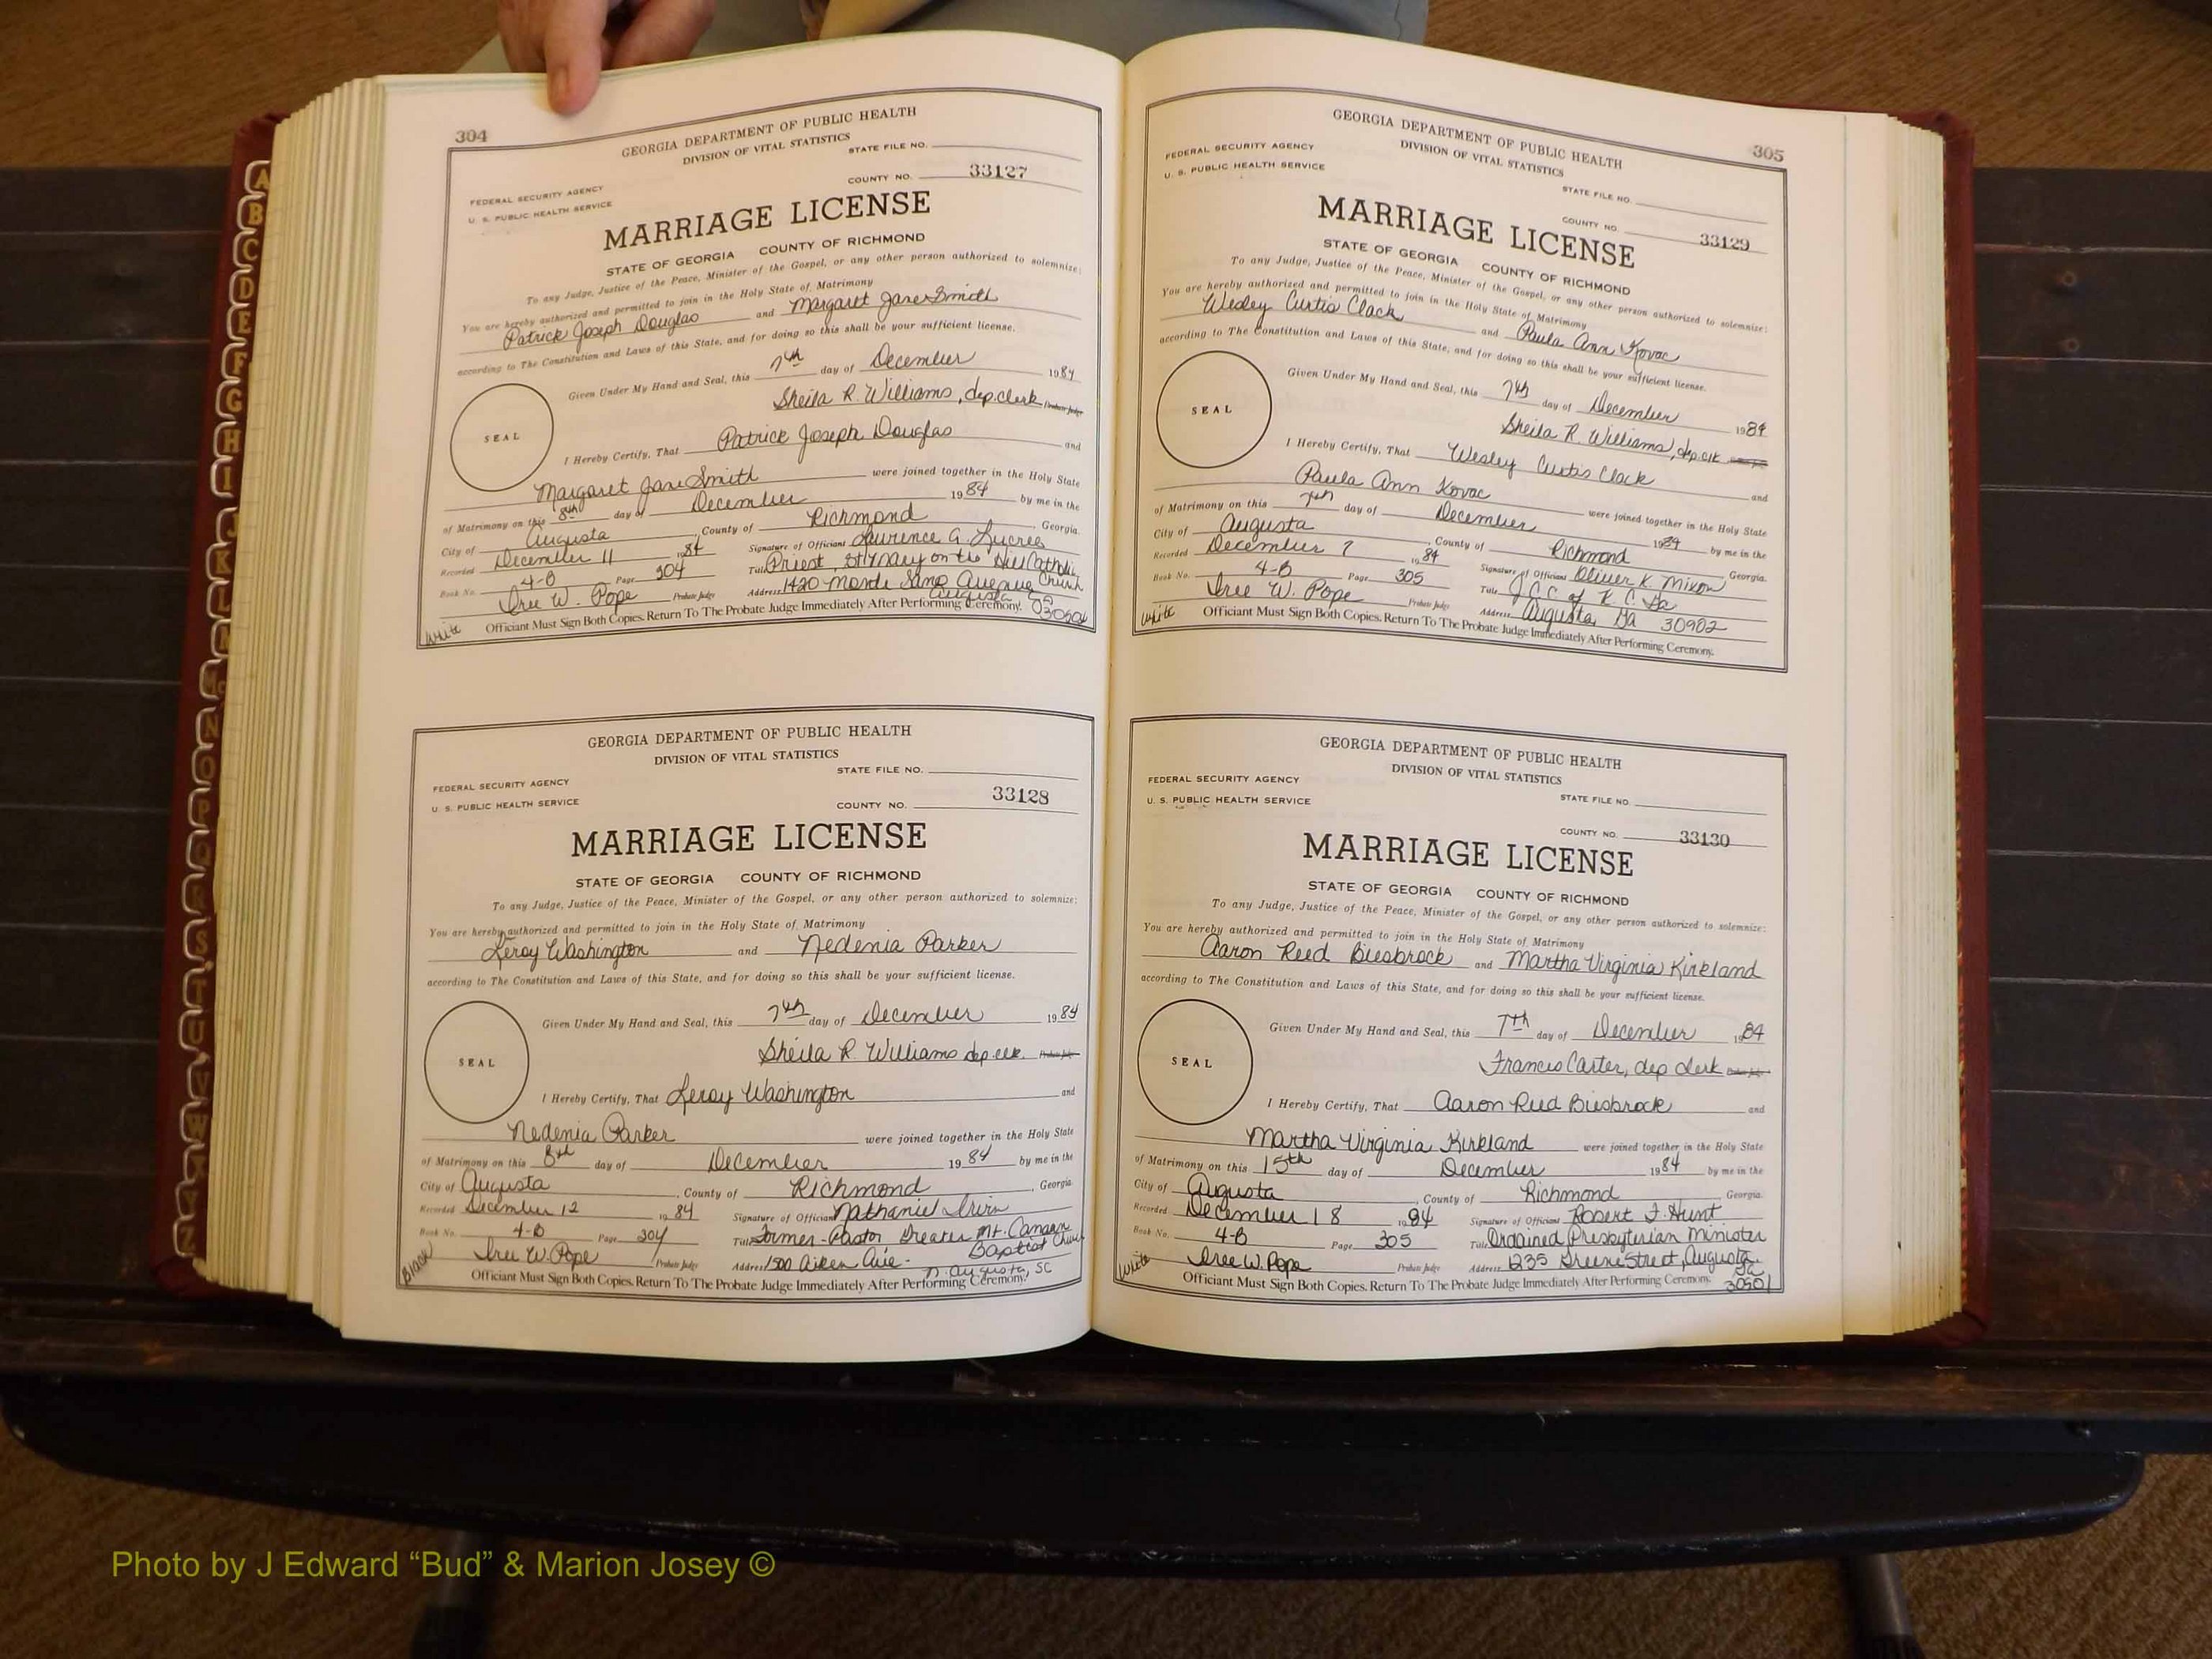 304
GEORGIA DEPARTMENT OF PUBLIC HEALTH
DIVISION OF VITAL STATISTICS
STATE FILE NO.
FEDERAL SECURITY AGENCY
U. S. PUBLIC HEALTH SERVICE
COUNTY NO. 33127
MARRIAGE LICENSE
STATE OF GEORGIA COUNTY OF RICHMOND
To any Judge, Justice of the Peace, Minister of the Gospel, or any other person authorized to solemnize:
You are hereby authorized and permitted to join in the Holy State of Matrimony
Patrick Joseph Douglas and Margaret Jane Smith
according to The Constitution and Laws of this State, and for doing so this shall be your sufficient license.
SEAL
Given Under My Hand and Seal, this 7th day of December 1984
Sheila R. Williams, dep. clerk Probate Judge
I Hereby Certify, That Patrick Joseph Douglas and
Margaret Jane Smith were joined together in the Holy State
of Matrimony on this 8th day of December 1984 by me in the
City of Augusta, County of Richmond, Georgia.
Recorded December 11 1984 Signature of Officiant Laurence A. Lucree
Book No. 4-B Page 304 Title Priest, St Mary on the Hill Catholic Church
Iree W. Pope Probate Judge Address 1420 Monte Sano Avenue Augusta
White
Officiant Must Sign Both Copies. Return To The Probate Judge Immediately After Performing Ceremony.
GEORGIA DEPARTMENT OF PUBLIC HEALTH
DIVISION OF VITAL STATISTICS
STATE FILE NO.
FEDERAL SECURITY AGENCY
U. S. PUBLIC HEALTH SERVICE
COUNTY NO. 33128
MARRIAGE LICENSE
STATE OF GEORGIA COUNTY OF RICHMOND
To any Judge, Justice of the Peace, Minister of the Gospel, or any other person authorized to solemnize:
You are hereby authorized and permitted to join in the Holy State of Matrimony
Leroy Washington and Nedenia Parker
according to The Constitution and Laws of this State, and for doing so this shall be your sufficient license.
SEAL
Given Under My Hand and Seal, this 7th day of December 1984
Sheila R. Williams dep. clk. Probate Judge
I Hereby Certify, That Leroy Washington and
Nedenia Parker were joined together in the Holy State
of Matrimony on this 8th day of December 1984 by me in the
City of Augusta, County of Richmond, Georgia.
Recorded December 12 1984 Signature of Officiant Nathaniel Irvin
Book No. 4-B Page 304 Title Former-Pastor Greater Mt. Canaan Baptist Church
Iree W. Pope Probate Judge Address 1500 Aiken Ave- N. Augusta, SC
Black
Officiant Must Sign Both Copies. Return To The Probate Judge Immediately After Performing Ceremony.
305
GEORGIA DEPARTMENT OF PUBLIC HEALTH
DIVISION OF VITAL STATISTICS
FEDERAL SECURITY AGENCY
U. S. PUBLIC HEALTH SERVICE
STATE FILE NO.
COUNTY NO. 33129
MARRIAGE LICENSE
STATE OF GEORGIA COUNTY OF RICHMOND
To any Judge, Justice of the Peace, Minister of the Gospel, or any other person authorized to solemnize:
You are hereby authorized and permitted to join in the Holy State of Matrimony
Wesley Curtis Clack and Paula Ann Kovac
according to The Constitution and Laws of this State, and for doing so this shall be your sufficient license.
SEAL
Given Under My Hand and Seal, this 7th day of December 1984
Sheila R. Williams, dep. clk
I Hereby Certify, That Wesley Curtis Clack and
Paula Ann Kovac were joined together in the Holy State
of Matrimony on this 7th day of December 1984 by me in the
City of Augusta, County of Richmond, Georgia.
Recorded December 7 1984 Signature of Officiant Oliver K. Mixon
Book No. 4-B Page 305 Title J.C.C. of R.C. Ga
Iree W. Pope Probate Judge Address Augusta, Ga 30902
White
Officiant Must Sign Both Copies. Return To The Probate Judge Immediately After Performing Ceremony.
GEORGIA DEPARTMENT OF PUBLIC HEALTH
DIVISION OF VITAL STATISTICS
FEDERAL SECURITY AGENCY
U. S. PUBLIC HEALTH SERVICE
STATE FILE NO.
COUNTY NO. 33130
MARRIAGE LICENSE
STATE OF GEORGIA COUNTY OF RICHMOND
To any Judge, Justice of the Peace, Minister of the Gospel, or any other person authorized to solemnize:
You are hereby authorized and permitted to join in the Holy State of Matrimony
Aaron Reed Biesbrock and Martha Virginia Kirkland
according to The Constitution and Laws of this State, and for doing so this shall be your sufficient license.
SEAL
Given Under My Hand and Seal, this 7th day of December 1984
Frances Carter, dep clerk
I Hereby Certify, That Aaron Reed Biesbrock and
Martha Virginia Kirkland were joined together in the Holy State
of Matrimony on this 15th day of December 1984 by me in the
City of Augusta, County of Richmond, Georgia.
Recorded December 18 1984 Signature of Officiant Robert F. Hunt
Book No. 4-B Page 305 Title Ordained Presbyterian Minister
Iree W. Pope Probate Judge Address 1235 Greene Street, Augusta, Ga 30901
White
Officiant Must Sign Both Copies. Return To The Probate Judge Immediately After Performing Ceremony.
A
B
C
D
E
F
G
H
I
J
K
L
M
Mc
N
O
P
Q
R
S
T
U
V
W
Z
Photo by J Edward “Bud” & Marion Josey ©